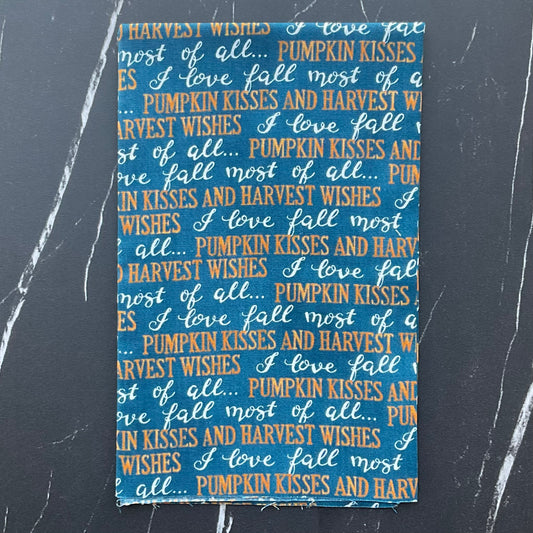 I love fall
most of all... PUMPKIN KISSES
ES I love fall most of a
PUMPKIN KISSES AND HARVEST WI
ARVEST WISHES I love fall
st of all... PUMPKIN KISSES AND
ove fall most of all... PUM
IN KISSES AND HARVEST WISHES I
WISHES I love fall most
all... PUMPKIN KISSES AND HARV
D HARVEST WISHES I love fal
most of all... PUMPKIN KISSES
ES I love fall most of a
PUMPKIN KISSES AND HARVEST WI
ARVEST WISHES I love fall
st of all... PUMPKIN KISSES AND
ove fall most of all... PUM
IN KISSES AND HARVEST WISHES I
WISHES I love fall most
all... PUMPKIN KISSES AND HARV